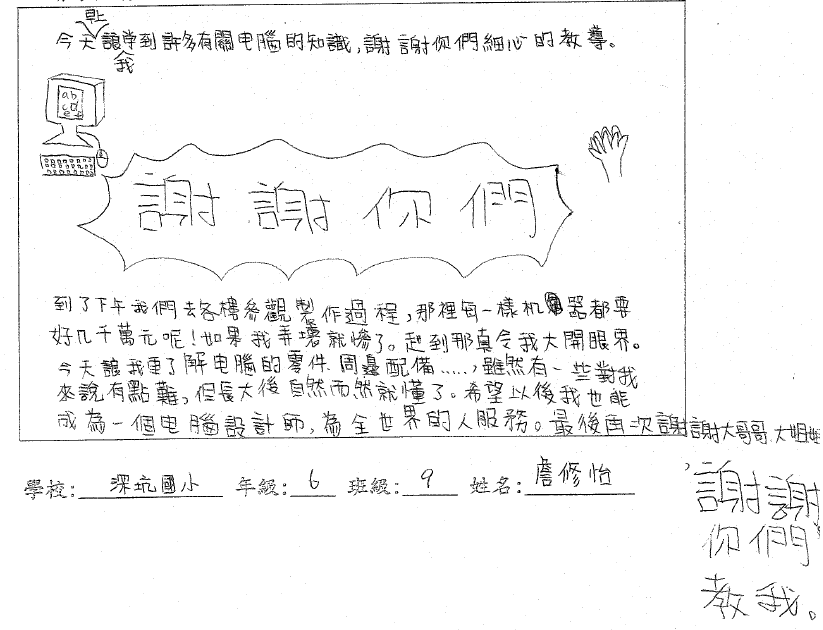 今天早上讓我學到許多有關电腦的知識,謝謝你們細心的教導。
abc
謝謝你們
到了下午我們去各樓參觀製作過程,那裡每一樣机器都要
好几千萬元呢!如果我弄壞就慘了。起到那真令我大開眼界。
今天讓我更了解电腦的零件、周邊配備.....,雖然有一些對我
來說有點難,但長大後自然而然就懂了。希望以後我也能
成為一個电腦設計師,為全世界的人服務。最後再次謝謝大哥哥、大姐姐
,謝謝
你們
教我。
學校:深坑國小 年級:6 班級:9 姓名:詹修怡